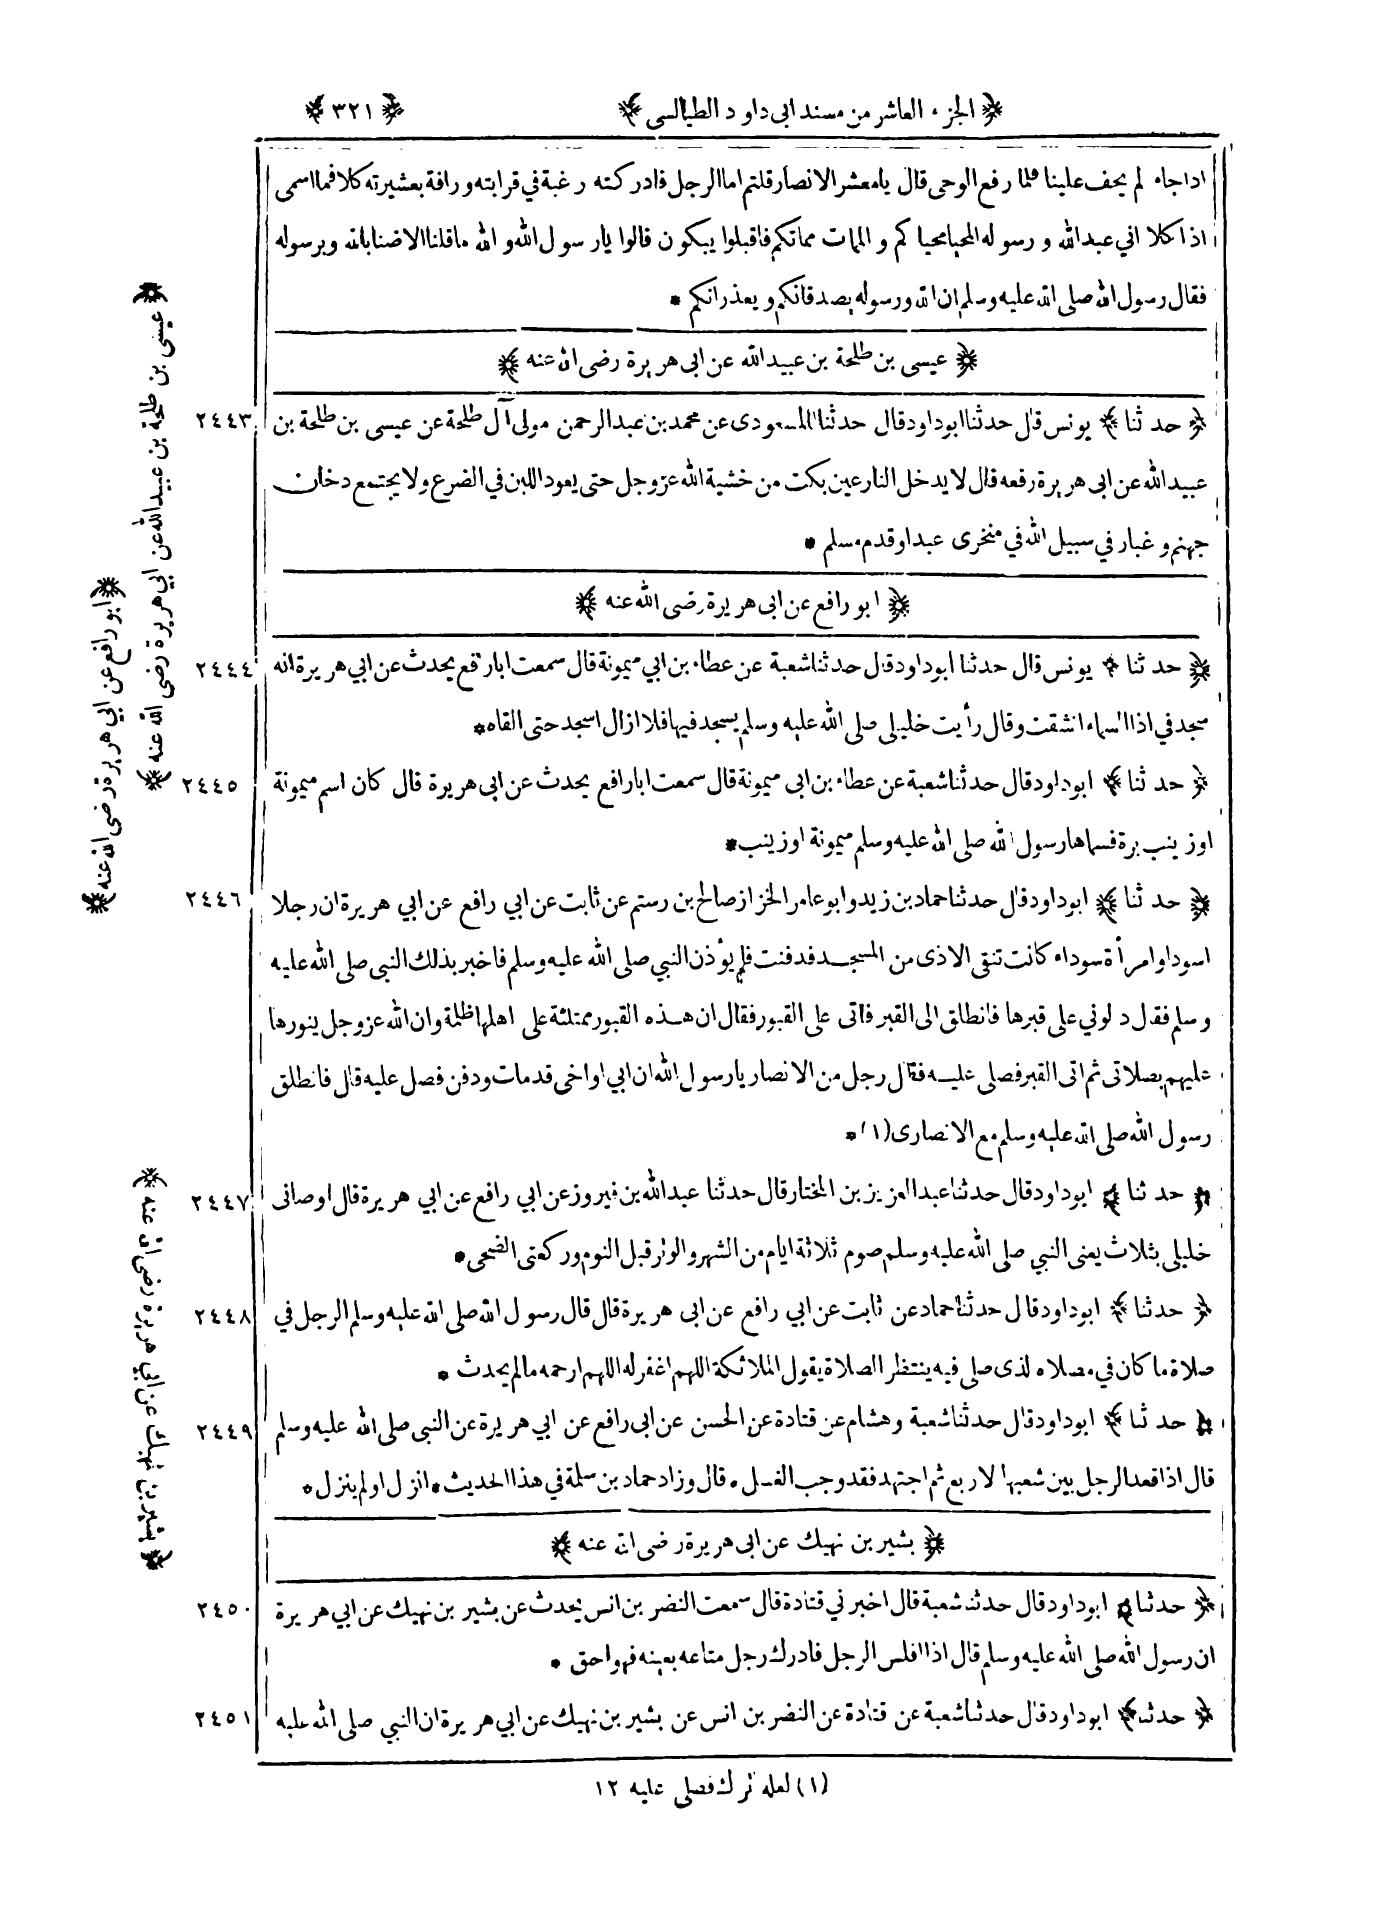 ﴿ الجزء العاشر من مسند ابى داود الطيالسى ﴾
﴿ ٣٢١ ﴾
اذا جاء لم يخف علينا فلما رفع الوحى قال يا معشر الانصار قلتم اما الرجل فادركته رغبة في قرابته ورافة بعشيرته كلا فما اسمى
اذا كلا اني عبدالله ورسوله المحيا محياكم والممات مماتكم فاقبلوا يبكون قالوا يارسول الله والله ماقلنا الا ضنا بالله وبرسوله
فقال رسول الله صلى الله عليه وسلم ان الله ورسوله يصدقانكم ويعذرانكم *
﴿ عيسى بن طلحة بن عبيدالله عن ابى هريرة رضى الله عنه ﴾
٢٤٤٣ ﴿ حدثنا ﴾ يونس قال حدثنا ابوداود قال حدثنا المسعودى عن محمد بن عبدالرحمن مولى آل طلحة عن عيسى بن طلحة بن
عبيدالله عن ابى هريرة رفعه قال لا يدخل النار عين بكت من خشية الله عزوجل حتى يعود اللبن في الضرع ولا يجتمع دخان
جهنم وغبار في سبيل الله في منخرى عبد او قدم مسلم *
﴿ ابو رافع عن ابى هريرة رضى الله عنه ﴾
٢٤٤٤ ﴿ حدثنا ﴾ يونس قال حدثنا ابوداود قال حدثنا شعبة عن عطاء بن ابي ميمونة قال سمعت ابارافع يحدث عن ابي هريرة انه
سجد في اذا السماء انشقت وقال رأيت خليلى صلى الله عليه وسلم يسجد فيها فلا ازال اسجد حتى القاه *
٢٤٤٥ ﴿ حدثنا ﴾ ابوداود قال حدثنا شعبة عن عطاء بن ابى ميمونة قال سمعت ابارافع يحدث عن ابى هريرة قال كان اسم ميمونة
اوزينب برة فسماها رسول الله صلى الله عليه وسلم ميمونة اوزينب *
٢٤٤٦ ﴿ حدثنا ﴾ ابوداود قال حدثنا حماد بن زيد وابوعامر الخزاز صالح بن رستم عن ثابت عن ابي رافع عن ابي هريرة ان رجلا
اسود او امرأة سوداء كانت تنقى الاذى من المسجد فدفنت فلم يؤذن النبي صلى الله عليه وسلم فاخبر بذلك النبي صلى الله عليه
وسلم فقال دلوني على قبرها فانطلق الى القبر فاتى على القبور فقال ان هذه القبور ممتلئة على اهلها ظلمة وان الله عزوجل ينورها
عليهم بصلاتى ثم اتى القبر فصلى عليه فقال رجل من الانصار يارسول الله ان ابي او اخى قد مات ودفن فصل عليه قال فانطلق
رسول الله صلى الله عليه وسلم مع الانصارى (١) *
٢٤٤٧ ﴿ حدثنا ﴾ ابوداود قال حدثنا عبدالعزيز بن المختار قال حدثنا عبدالله بن فيروز عن ابي رافع عن ابي هريرة قال اوصانى
خليلى بثلاث يعنى النبي صلى الله عليه وسلم صوم ثلاثة ايام من الشهر والوتر قبل النوم وركعتى الضحى *
٢٤٤٨ ﴿ حدثنا ﴾ ابوداود قال حدثنا حماد عن ثابت عن ابي رافع عن ابى هريرة قال قال رسول الله صلى الله عليه وسلم الرجل في
صلاة ما كان في مصلاه لذى صلى فيه ينتظر الصلاة يقول الملائكة اللهم اغفر له اللهم ارحمه مالم يحدث *
٢٤٤٩ ﴿ حدثنا ﴾ ابوداود قال حدثنا شعبة وهشام عن قتادة عن الحسن عن ابى رافع عن ابي هريرة عن النبى صلى الله عليه وسلم
قال اذا قعد الرجل بين شعبها الاربع ثم اجتهد فقد وجب الغسل * قال وزاد حماد بن سلمة في هذا الحديث * انزل اولم ينزل *
﴿ بشير بن نهيك عن ابى هريرة رضى الله عنه ﴾
٢٤٥٠ ﴿ حدثنا ﴾ ابوداود قال حدثنا شعبة قال اخبرني قتادة قال سمعت النضر بن انس يحدث عن بشير بن نهيك عن ابي هريرة
ان رسول الله صلى الله عليه وسلم قال اذا افلس الرجل فادرك رجل متاعه بعينه فهو احق *
٢٤٥١ ﴿ حدثنا ﴾ ابوداود قال حدثنا شعبة عن قتادة عن النضر بن انس عن بشير بن نهيك عن ابي هريرة ان النبي صلى الله عليه
(١) لعله ترك فصلى عليه ١٢
﴿ عيسى بن طلحة بن عبيدالله عن ابي هريرة رضى الله عنه ﴾
﴿ ابو رافع عن ابي هريرة رضى الله عنه ﴾
﴿ بشير بن نهيك عن ابي هريرة رضى الله عنه ﴾